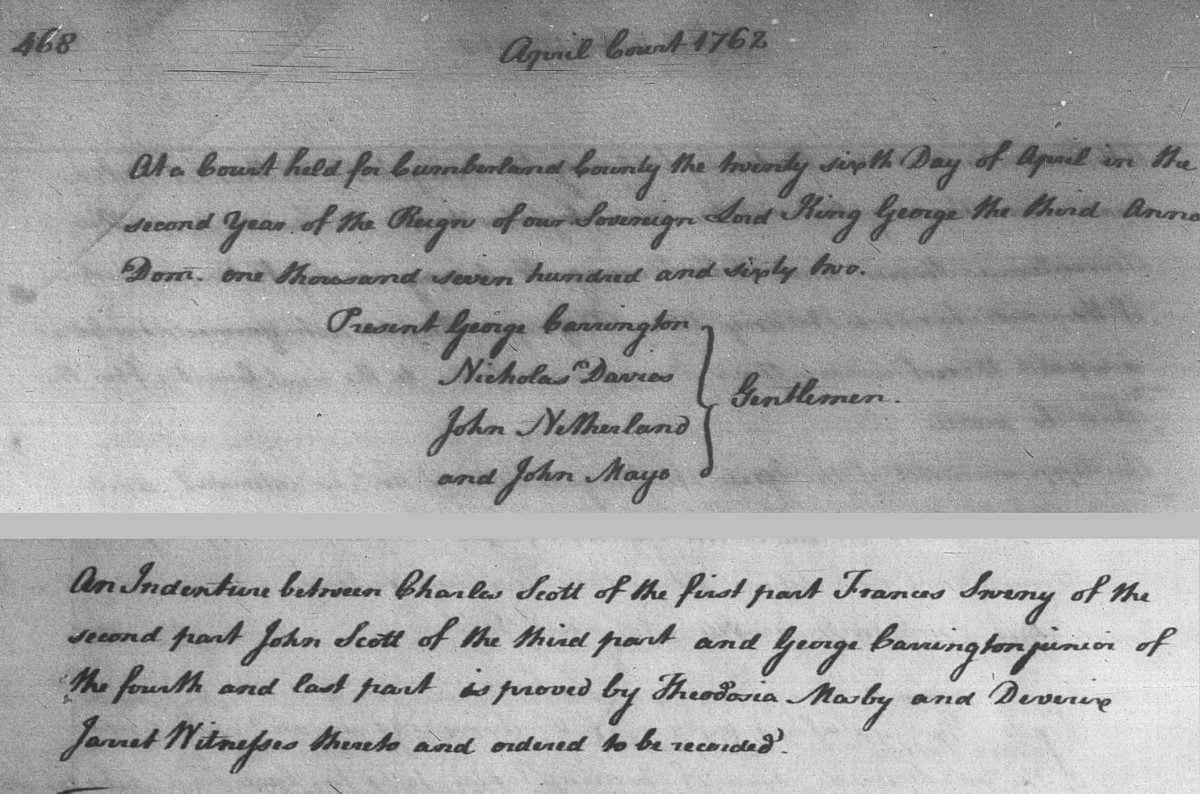 468
April Court 1762
At a Court held for Cumberland County the twenty sixth Day of April in the
second Year of the Reign of our Sovereign Lord King George the third Anno
Dom. one thousand seven hundred and sixty two.
Present George Carrington
Nicholas Davies
John Netherland
and John Mayo
Gentlemen.
An Indenture between Charles Scott of the first part Frances Sweny of the
second part John Scott of the third part and George Carrington junior of
the fourth and last part is proved by Theodosia Mosby and Deverix
Jarret Witnesses thereto and ordered to be recorded.